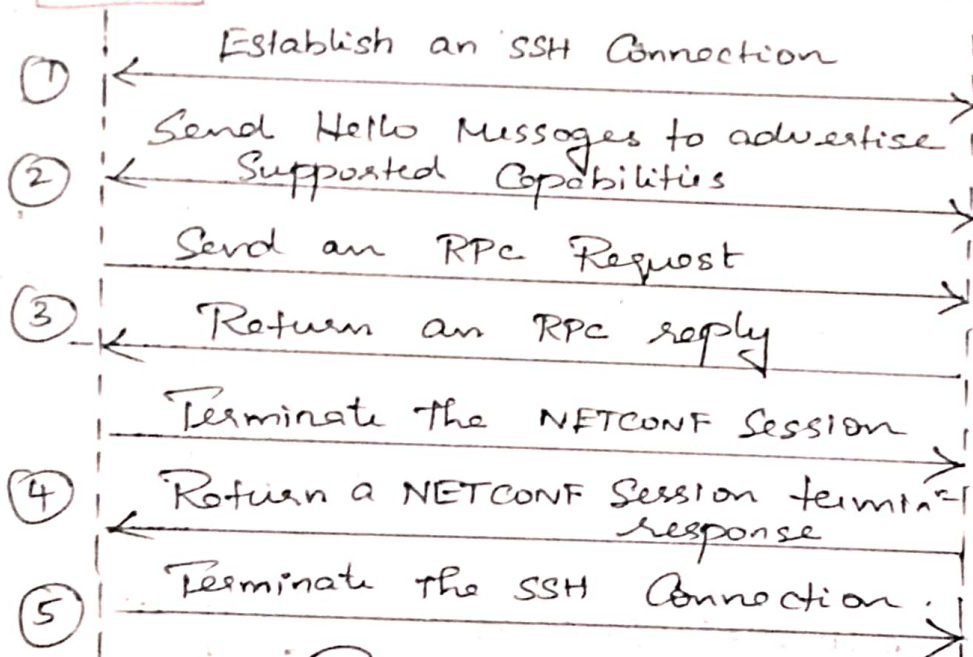 Establish an SSH Connection
①
Send Hello Messages to advertise
② Supported Capabilities
Send an RPC Request
③ Return an RPC reply
Terminate the NETCONF Session
④ Return a NETCONF Session termin
response
Terminate the SSH Connection.
⑤